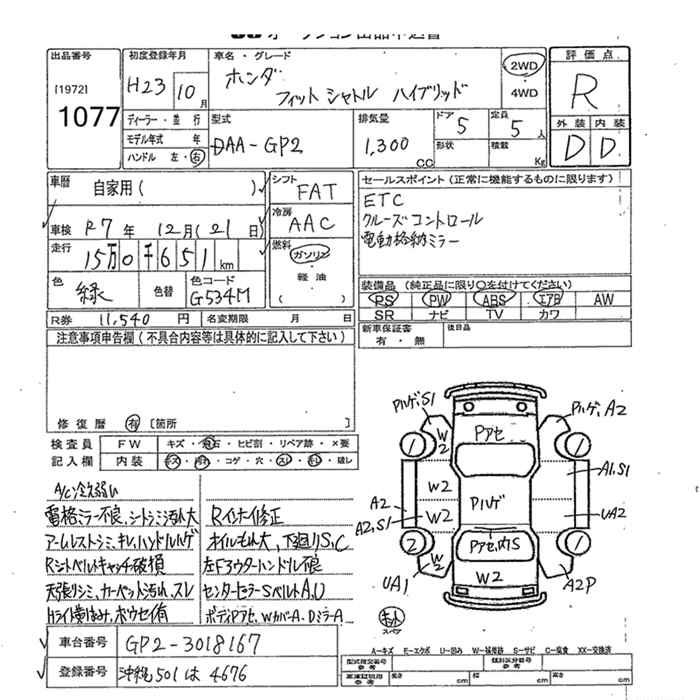 出品番号
[1972]
1077
初度登録年月
H23 10月
ディーラー・並行
モデル年式 年
ハンドル 左・右
車名・グレード
ホンダ
フィットシャトル ハイブリッド
2WD
4WD
型式
DAA-GP2
排気量
1,300 CC
ドア
5
形状
定員
5人
積載
Kg
評価点
R
外装 内装
D D
車歴
自家用( )
車検 R7年 12月(21日)
走行
15万0千651km
色
緑
色替
色コード
G534M
シフト
FAT
冷房
AAC
燃料
ガソリン
軽油
( )
セールスポイント(正常に機能するものに限ります)
ETC
クルーズコントロール
電動格納ミラー
装備品(純正品に限り○を付けてください)
PS PW ABS エアB AW
SR ナビ TV カワ
新車保証書
有・無
後日品
R券 11,540円
名変期限 月 日
注意事項申告欄(不具合内容等は具体的に記入して下さい)
修復歴 有 [箇所 ]
検査員
記入欄
FW キズ・飛石・ヒビ割・リペア跡・×要
内装 キズ・汚れ・コゲ・穴・スレ・キレ・破レ
A/C冷え弱い
電格ミラー不良、シートシミ汚れ大
アームレストシミ、キレ、ハンドルハゲ
Rシートベルトキャッチ破損
天張りシミ、カーペット汚れ、スレ
Hライト黄ばみ、ボウセイ有
Rインナー修正
オイルもれ大、下廻りS、C
左Fアウターハンドル不良
センターピラーSベルトA、U
ボディPアセ、WカバーA、DミラーA
車台番号 GP2-3018167
登録番号 沖縄 501 は 4676
Pハゲ、S1
Pハゲ、A2
W2
Pアセ
1
1
W2
A1、S1
A2
W2
Pハゲ
UA2
A2、S1
2
1
W2
Pアセ、内S
UA1
W2
A2P
キット
スペア
A=キズ E=エクボ U=凹み W=補修跡 S=サビ C=腐食 XX=交換済
型式指定番号
参考
類別区分番号
参考
長さ cm 幅 cm 高さ cm